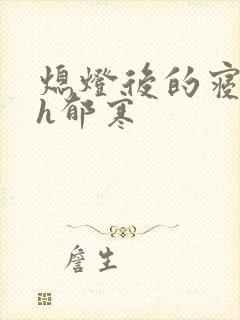 熄燈後的寢
h郁寒
詹生